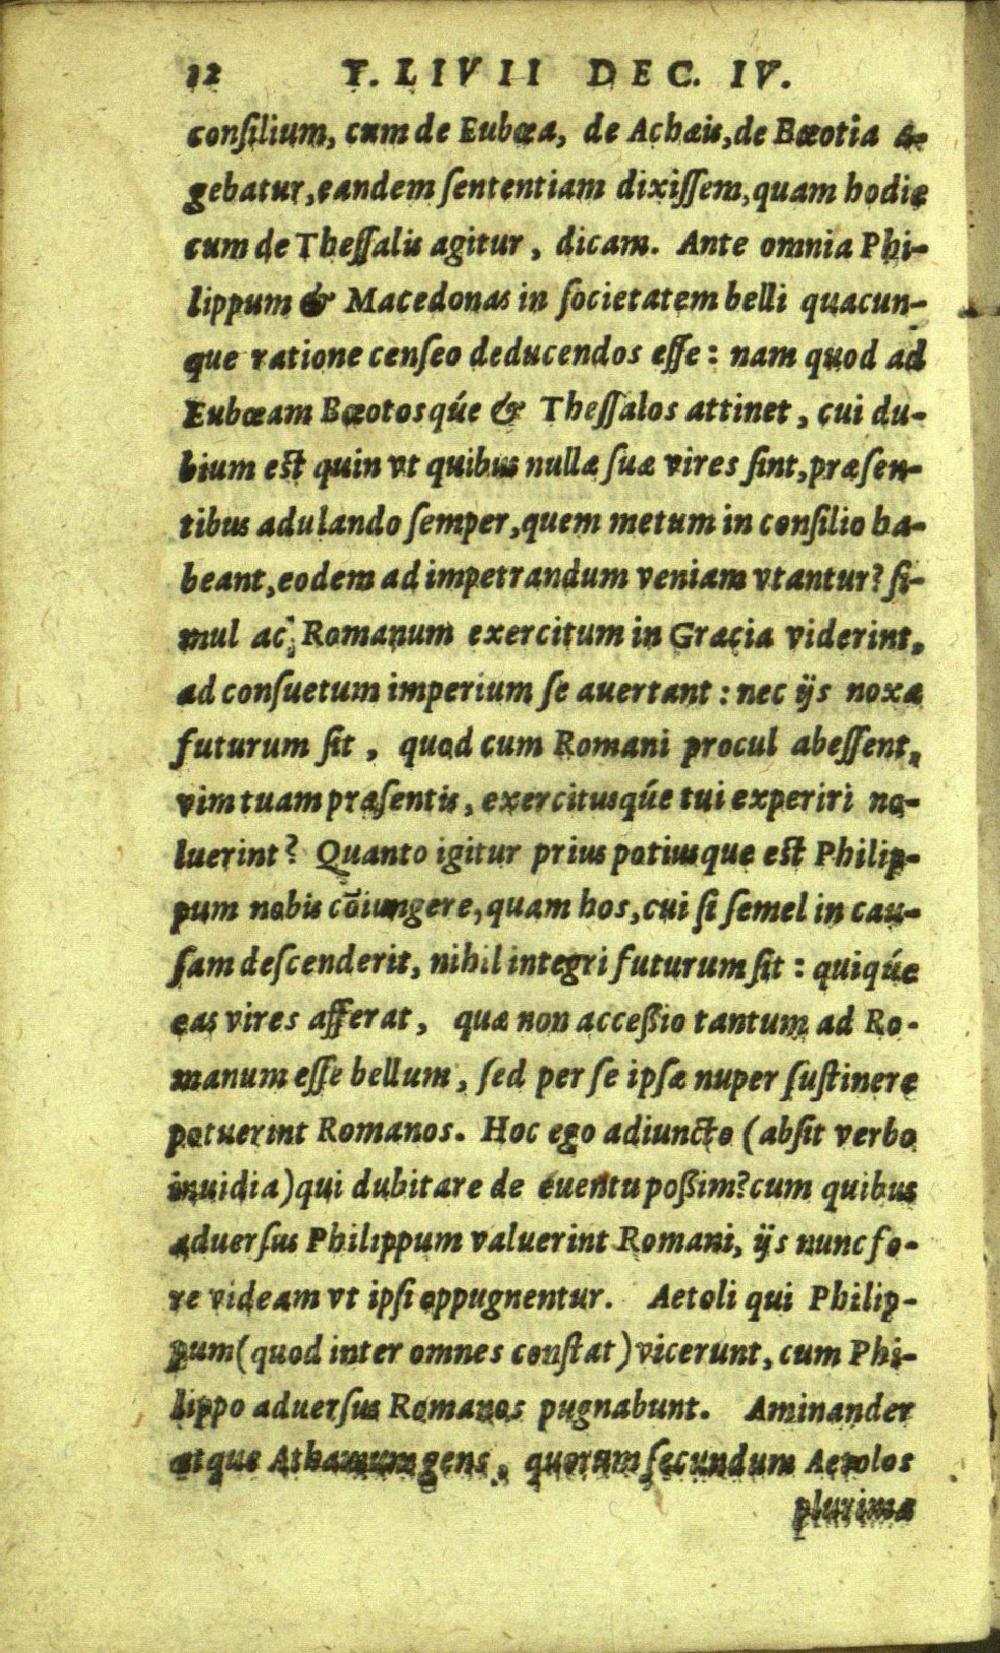 12 T. LIVII DEC. IV.
consilium, cum de Eubœa, de Achæis, de Bœotia a-
gebatur, eandem sententiam dixissem, quam hodie
cum de Thessalis agitur, dicam. Ante omnia Phi-
lippum & Macedonas in societatem belli quacun-
que ratione censeo deducendos esse: nam quod ad
Eubœam Bœotosqúe & Thessalos attinet, cui du-
bium est quin vt quibus nullæ suæ vires sint, præsen-
tibus adulando semper, quem metum in consilio ha-
beant, eodem ad impetrandum veniam vtantur? si-
mul ac Romanum exercitum in Græcia viderint,
ad consuetum imperium se auertant: nec ijs noxæ
futurum sit, quod cum Romani procul abessent,
vim tuam præsentis, exercitusqúe tui experiri no-
luerint? Quanto igitur prius potiusque est Philip-
pum nobis cōiungere, quam hos, cui si semel in cau-
sam descenderit, nihil integri futurum sit: quiqúe
eas vires afferat, quæ non accessio tantum ad Ro-
manum esse bellum, sed per se ipsæ nuper sustinere
potuerint Romanos. Hoc ego adiuncto (absit verbo
inuidia) qui dubitare de euentu possim? cum quibus
aduersus Philippum valuerint Romani, ijs nunc fo-
re videam vt ipsi oppugnentur. Aetoli qui Philip-
pum (quod inter omnes constat) vicerunt, cum Phi-
lippo aduersus Romanos pugnabunt. Aminander
atque Athamum gens, quorum secundum Aetolos
plurima